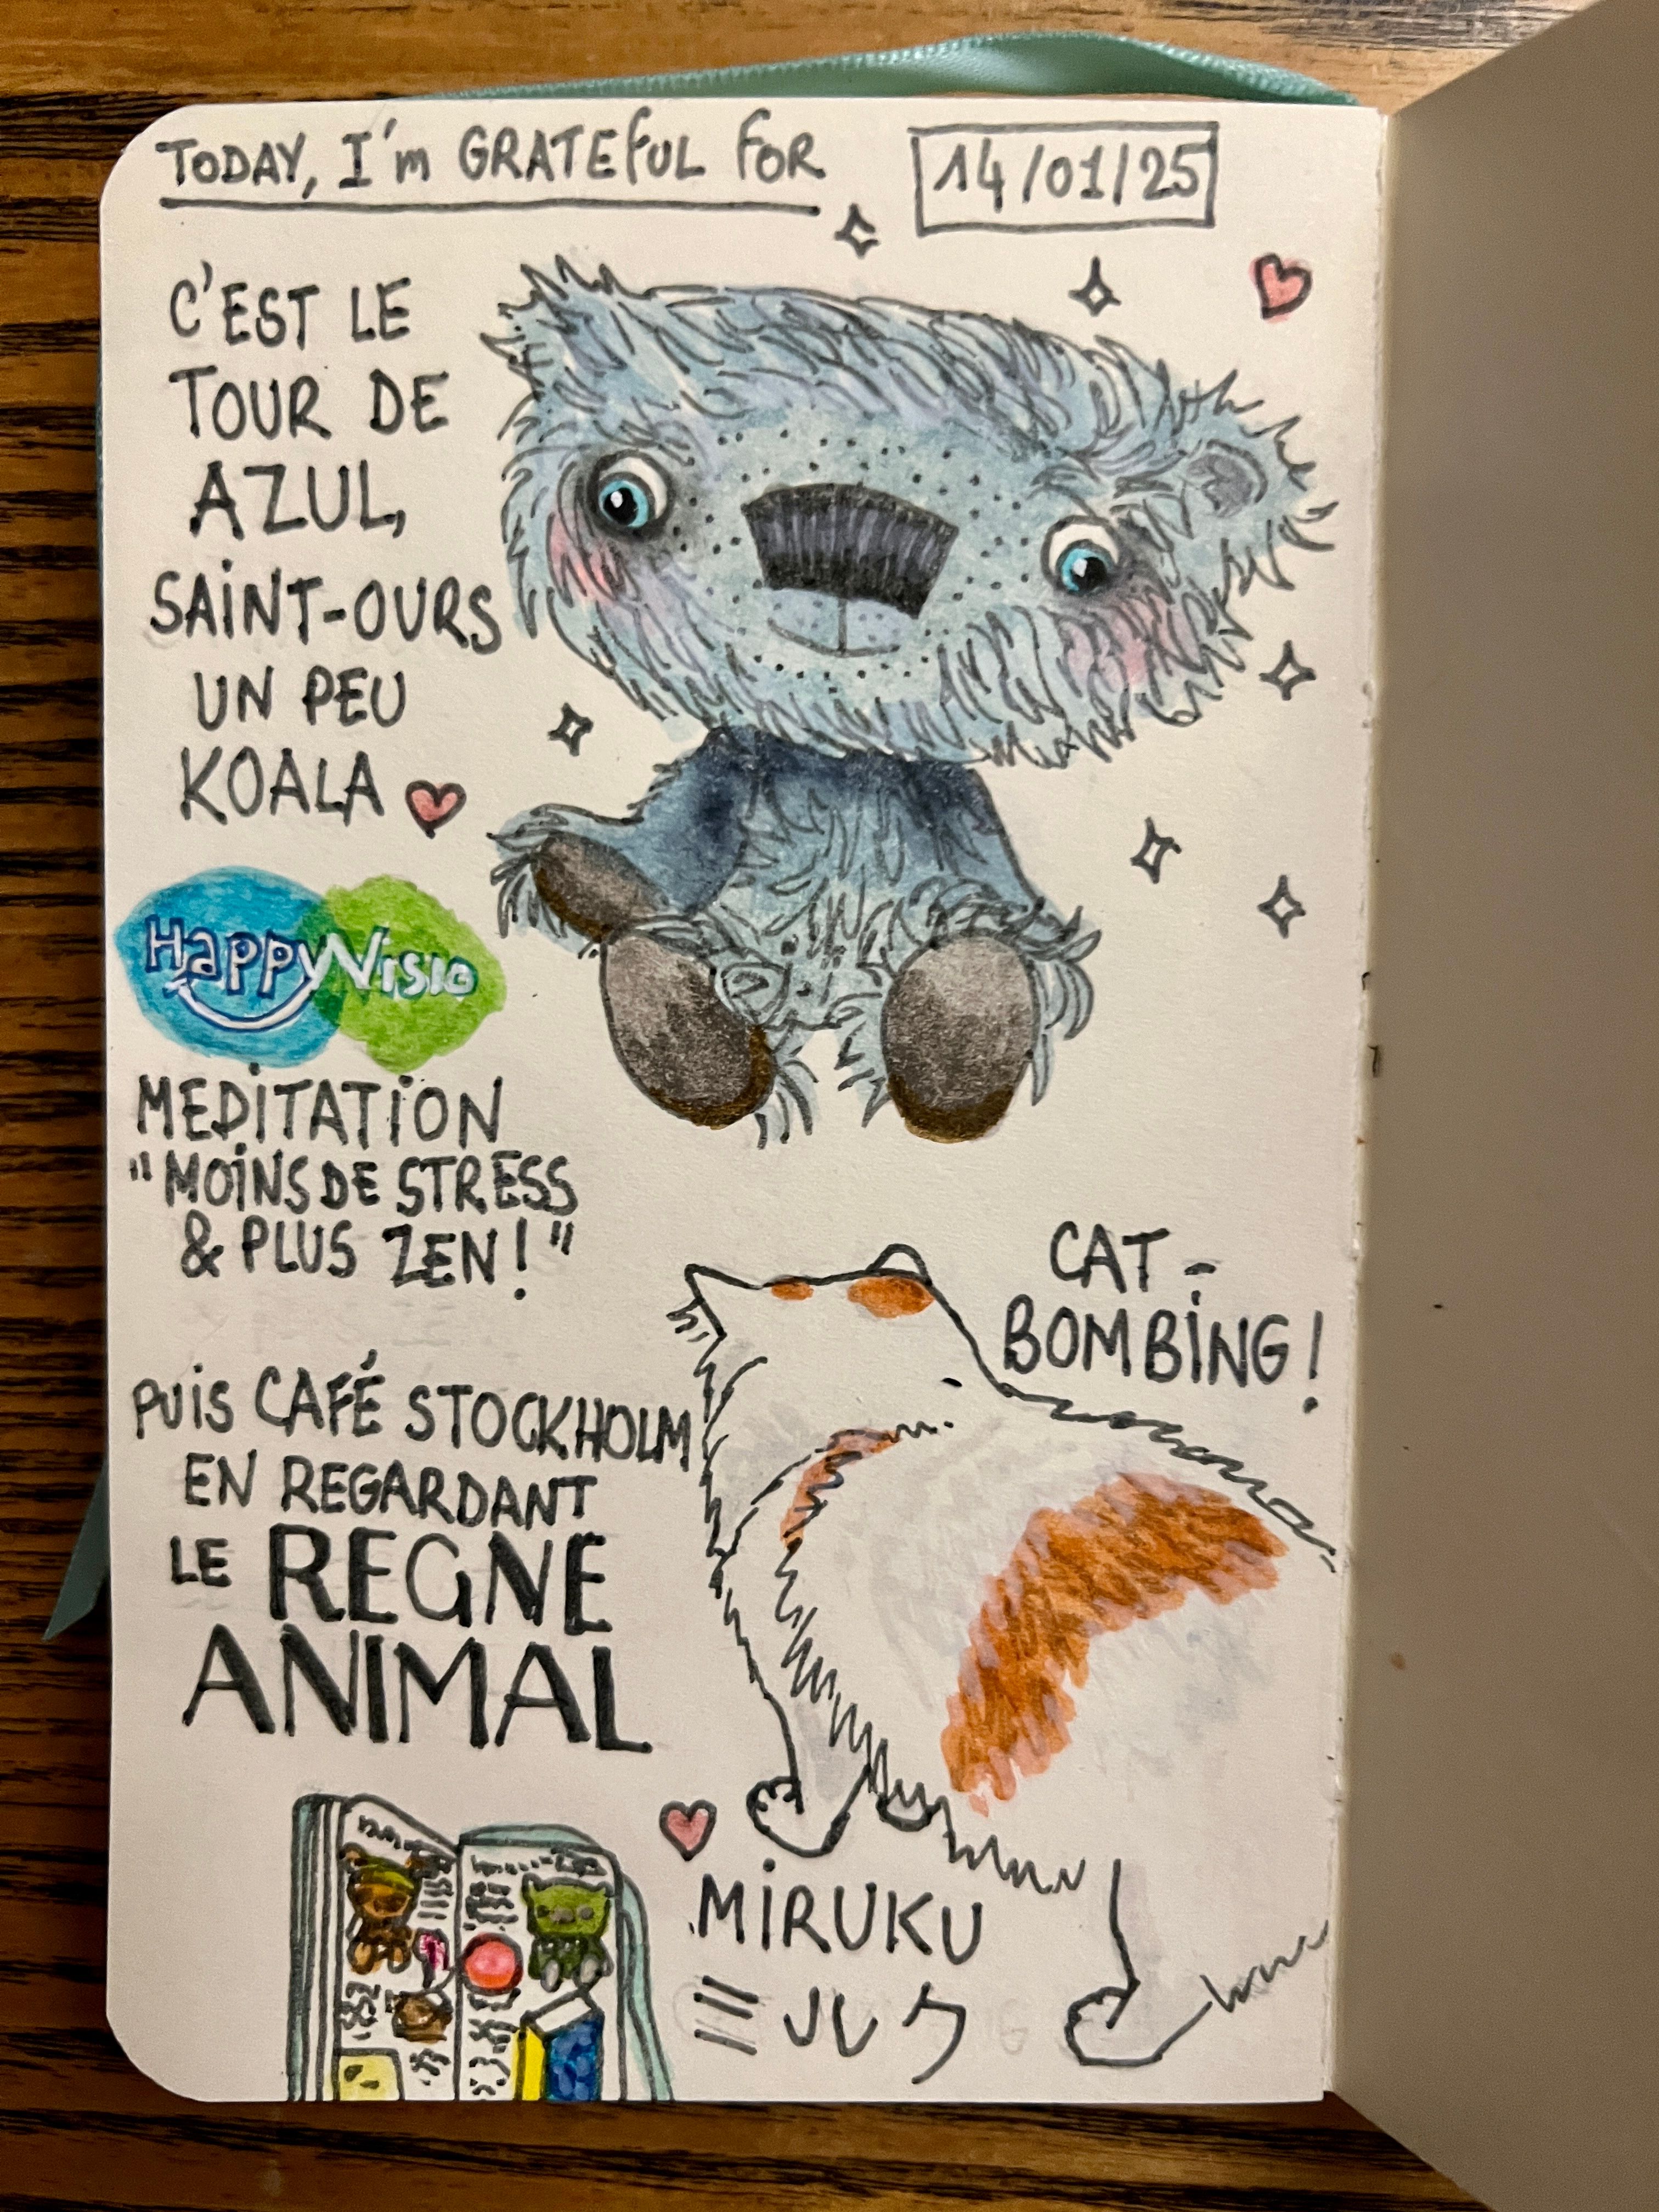 TODAY, I'm GRATEFUL FOR
14/01/25
C'EST LE
TOUR DE
AZUL,
SAINT-OURS
UN PEU
KOALA
HappyVisio
MEDITATION
"MOINS DE STRESS
& PLUS ZEN!"
PUIS CAFÉ STOCKHOLM
EN REGARDANT
LE REGNE
ANIMAL
CAT-
BOMBING!
MIRUKU
ミルク